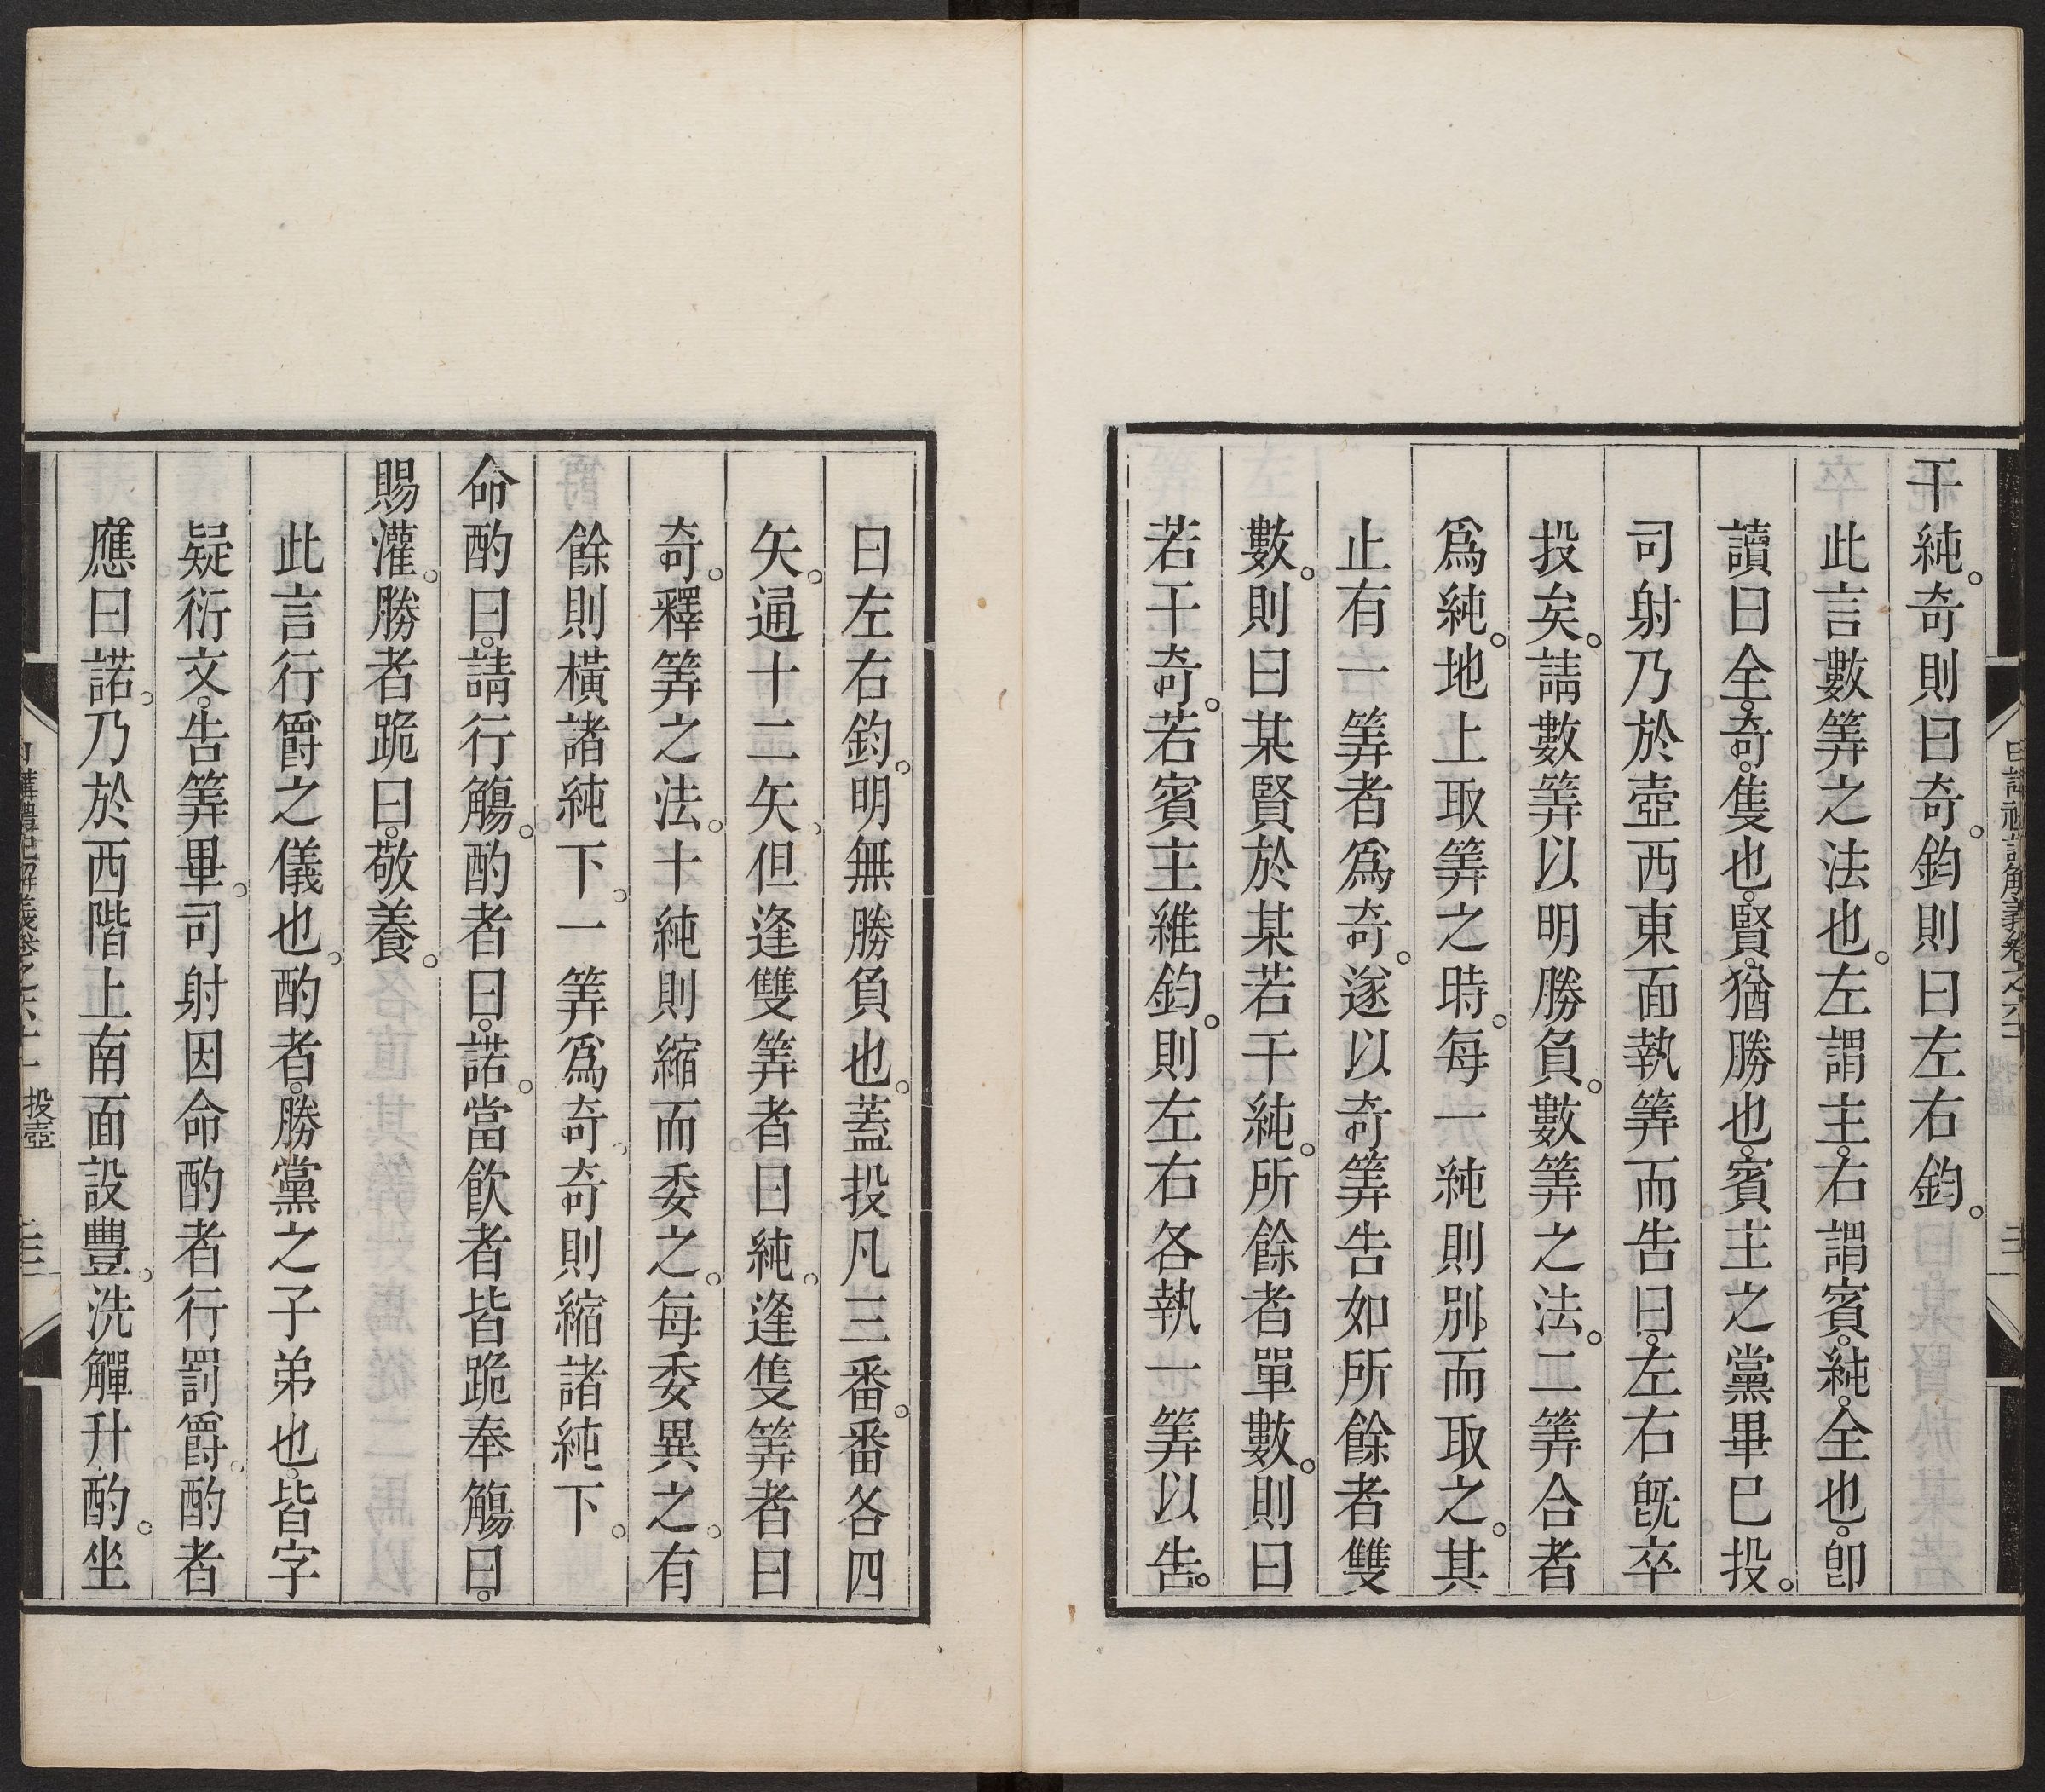 干純。奇則曰奇。鈞則曰左右鈞。
此言數筭之法也。左謂主。右謂賓。純。全也。卽
讀曰全。奇。隻也。賢。猶勝也。賓主之黨畢已投。
司射乃於壺西東面執筭而告曰。左右旣卒
投矣。請數筭以明勝負。數筭之法。二筭合者
爲純。地上取筭之時。每一純則別而取之。其
止有一筭者爲奇。遂以奇筭告如所餘者雙
數。則曰某賢於某若干純。所餘者單數。則曰
若干奇。若賓主維鈞。則左右各執一筭以告。
曰左右鈞。明無勝負也。蓋投凡三番。番各四
矢。通十二矢。但逢雙筭者曰純。逢隻筭者曰
奇。釋筭之法。十純則縮而委之。每委異之。有
餘則橫諸純下。一筭爲奇。奇則縮諸純下。
命酌曰。請行觴。酌者曰。諾。當飮者皆跪奉觴曰。
賜灌。勝者跪曰。敬養。
此言行爵之儀也。酌者。勝黨之子弟也。皆字
疑衍文。告筭畢。司射因命酌者行罰爵。酌者
應曰諾。乃於西階上南面設豐。洗觶升酌。坐
投壺